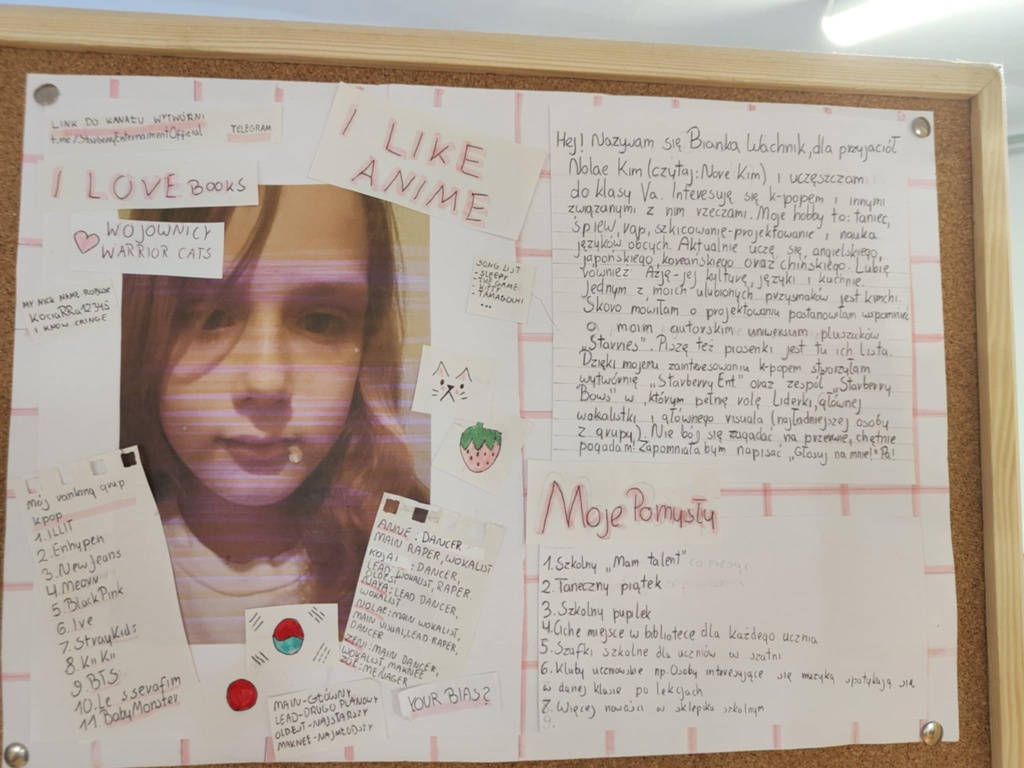 LINK DO KANAŁU WYTWÓRNI
t.me/StarberryEntertainmentOfficial TELEGRAM
I LOVE BOOKS
WOJOWNICY
WARRIOR CATS
MY NICK NAME ROBLOX
KociaRRa12345
I KNOW CRINGE
I LIKE
ANIME
SONG LIST
- SLEEPY
- THE GAME
- BITTY
- TAMAGOCHI
...
Hej! Nazywam się Bianka Wachnik, dla przyjaciół
Nolae Kim (czytaj: Nove Kim) i uczęszczam
do klasy Va. Interesuję się k-popem i innymi
związanymi z nim rzeczami. Moje hobby to: taniec,
śpiew, rap, szkicowanie-projektowanie i nauka
języków obcych. Aktualnie uczę się, angielskiego,
japońskiego, koreańskiego oraz chińskiego. Lubię
również Azję-jej kulturę, języki i kuchnie.
Jednym z moich ulubionych przysmaków jest kimchi.
Skoro mówiłam o projektowaniu postanowiłam wspomnieć
o moim autorskim uniwersum pluszaków
„Starnes". Piszę też piosenki jest tu ich lista.
Dzięki mojemu zainteresowaniu k-popem stworzyłam
wytwórnię „Starberry Ent" oraz zespół „Starberry
Bows" w którym pełnę rolę Liderki, głównej
wokalistki i głównego visuala (najładniejszej osoby
z grupy). Nie bój się zagadać na przerwie, chętnie
pogadam! Zapomniała bym napisać „Głosuj na mnie!" Pa!
mój ranking grup
kpop
1. ILLIT
2. Enhypen
3. NewJeans
4. Meovv
5. BlackPink
6. Ive
7. StrayKids
8. Kiii Kiii
9. BTS
10. Le sserafim
11. BabyMonster
ANNIE: DANCER
MAIN RAPER, WOKALIST
: DANCER,
LEAD WOKALIST, RAPER
OLDEST
: LEAD DANCER,
WOKALIST
NOLAE: MAIN WOKALIST,
MAIN VISUAL, LEAD RAPER,
DANCER
ZENI: MAIN DANCER,
WOKALIST, MAKNEE
ZOE: MENAGER
MAIN-GŁÓWNY
LEAD-DRUGO PLANOWY
OLDEST-NAJSTARSZY
MAKNEE-NAJMŁODSZY
YOUR BIAS?
Moje Pomysły
1. Szkolny „Mam talent"
2. Taneczny piątek
3. Szkolny pupilek
4. Ciche miejsce w bibliotece dla każdego ucznia
5. Szafki szkolne dla uczniów w szatni
6. Kluby uczniowskie np. Osoby interesujące się muzyką spotykają się
w danej klasie po lekcjach
7. Więcej nowości w sklepiku szkolnym